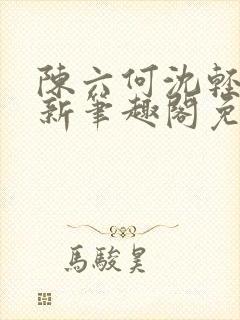 陳六何沈輕
新筆趣閣免
馬駿昊